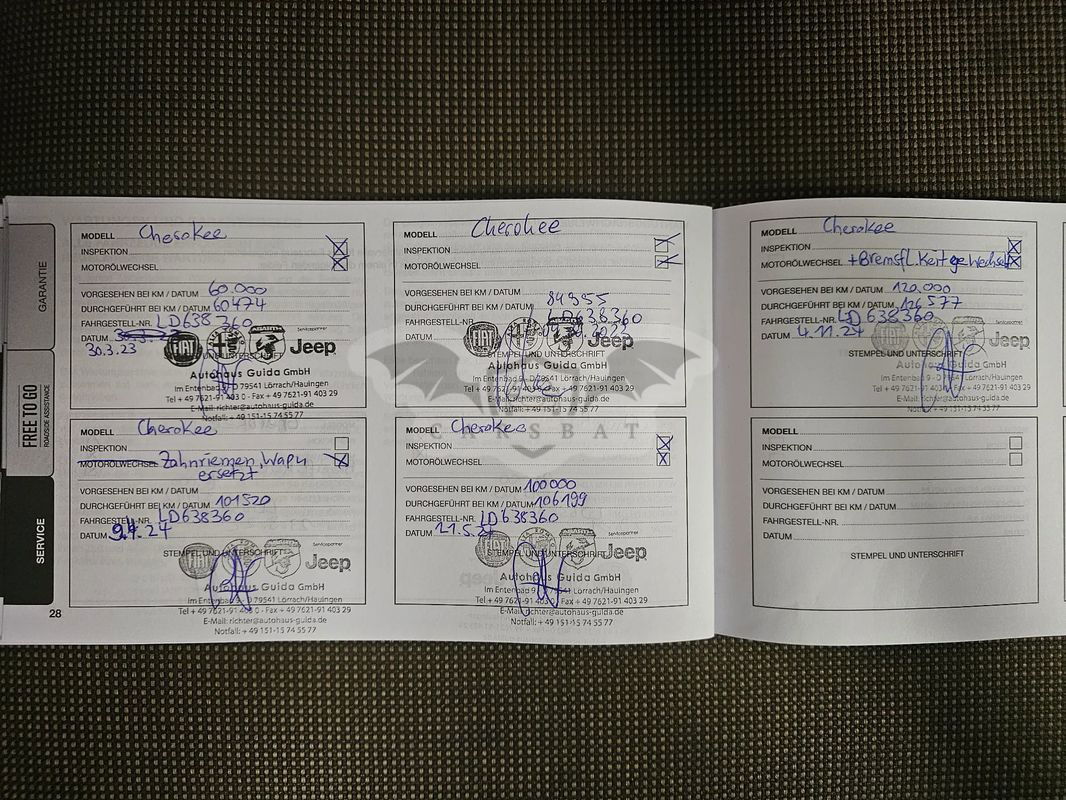 GARANTIE
FREE TO GO
ROADSIDE ASSISTANCE
SERVICE
28
MODELL Cherokee
INSPEKTION
MOTORÖLWECHSEL
VORGESEHEN BEI KM / DATUM 60.000
DURCHGEFÜHRT BEI KM / DATUM 60474
FAHRGESTELL-NR. LD638360
DATUM
30.3.23
FIAT ABARTH Servicepartner
Jeep
STEMPEL UND UNTERSCHRIFT
Autohaus Guida GmbH
Im Entenbad 9 - D 79541 Lörrach/Hauingen
Tel + 49 7621-91 403 0 - Fax + 49 7621-91 403 29
E-Mail: richter@autohaus-guida.de
Notfall: + 49 151-15 74 55 77
MODELL Cherokee
INSPEKTION
MOTORÖLWECHSEL
VORGESEHEN BEI KM / DATUM
DURCHGEFÜHRT BEI KM / DATUM 84955
FAHRGESTELL-NR. LD638360
DATUM
FIAT Jeep
STEMPEL UND UNTERSCHRIFT
Autohaus Guida GmbH
Im Entenbad 9 - D 79541 Lörrach/Hauingen
Tel + 49 7621-91 403 0 - Fax + 49 7621-91 403 29
E-Mail: richter@autohaus-guida.de
Notfall: + 49 151-15 74 55 77
MODELL Cherokee
INSPEKTION
MOTORÖLWECHSEL + Bremsfl.Keit gewechselt
VORGESEHEN BEI KM / DATUM 120.000
DURCHGEFÜHRT BEI KM / DATUM 126577
FAHRGESTELL-NR. LD638360
DATUM 4.11.24
Servicepartner
Jeep
STEMPEL UND UNTERSCHRIFT
Autohaus Guida GmbH
Im Entenbad 9 - D 79541 Lörrach/Hauingen
Tel + 49 7621-91 403 0 - Fax + 49 7621-91 403 29
E-Mail: richter@autohaus-guida.de
Notfall: + 49 151-15 74 55 77
CARSBAT
MODELL Cherokee
INSPEKTION
MOTORÖLWECHSEL Zahnriemen, Wapu
ersetzt
VORGESEHEN BEI KM / DATUM
DURCHGEFÜHRT BEI KM / DATUM 101520
FAHRGESTELL-NR. LD638360
DATUM 9.4.24
FIAT Servicepartner
Jeep
STEMPEL UND UNTERSCHRIFT
Autohaus Guida GmbH
Im Entenbad 9 - D 79541 Lörrach/Hauingen
Tel + 49 7621-91 403 0 - Fax + 49 7621-91 403 29
E-Mail: richter@autohaus-guida.de
Notfall: + 49 151-15 74 55 77
MODELL Cherokee
INSPEKTION
MOTORÖLWECHSEL
VORGESEHEN BEI KM / DATUM 100000
DURCHGEFÜHRT BEI KM / DATUM 106199
FAHRGESTELL-NR. LD638360
DATUM
FIAT Servicepartner
Jeep
STEMPEL UND UNTERSCHRIFT
Autohaus Guida GmbH
Im Entenbad 9 - D 79541 Lörrach/Hauingen
Tel + 49 7621-91 403 0 - Fax + 49 7621-91 403 29
E-Mail: richter@autohaus-guida.de
Notfall: + 49 151-15 74 55 77
MODELL
INSPEKTION
MOTORÖLWECHSEL
VORGESEHEN BEI KM / DATUM
DURCHGEFÜHRT BEI KM / DATUM
FAHRGESTELL-NR.
DATUM
STEMPEL UND UNTERSCHRIFT